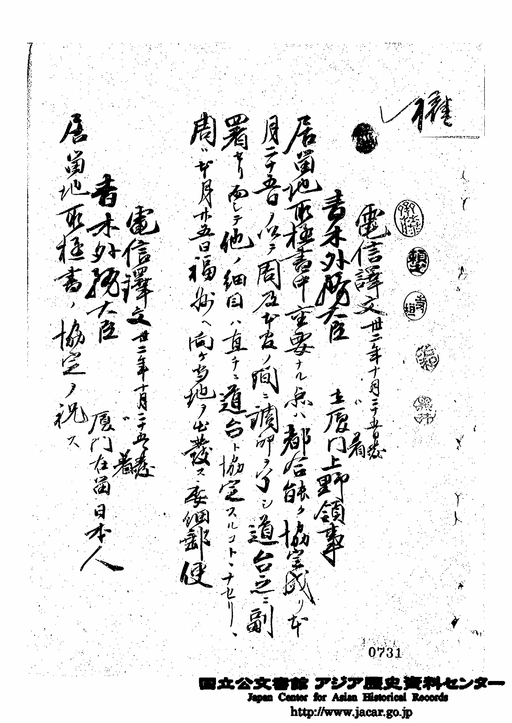 權
電信譯文 卅二年十月二十五日發
〃着
青木外務大臣
在厦門上野領事
居留地取極書中重要ナル点ハ都合能ク協定成リ本
月二十五日ノ以テ周及本官ノ間ニ調印ヲ了シ道台之ニ副
署セリ而シテ他ノ細目ハ直チニ道台ト協定スルコトヽナセリ、
周ハ本月廿五日福州ヘ向ケ当地ヲ出發ス委細郵便
電信譯文 卅二年十月二十五日發
〃着
青木外務大臣
厦門在留日本人
居留地取極書ノ協定ヲ祝ス
0731
国立公文書館 アジア歴史資料センター
Japan Center for Asian Historical Records
http://www.jacar.go.jp